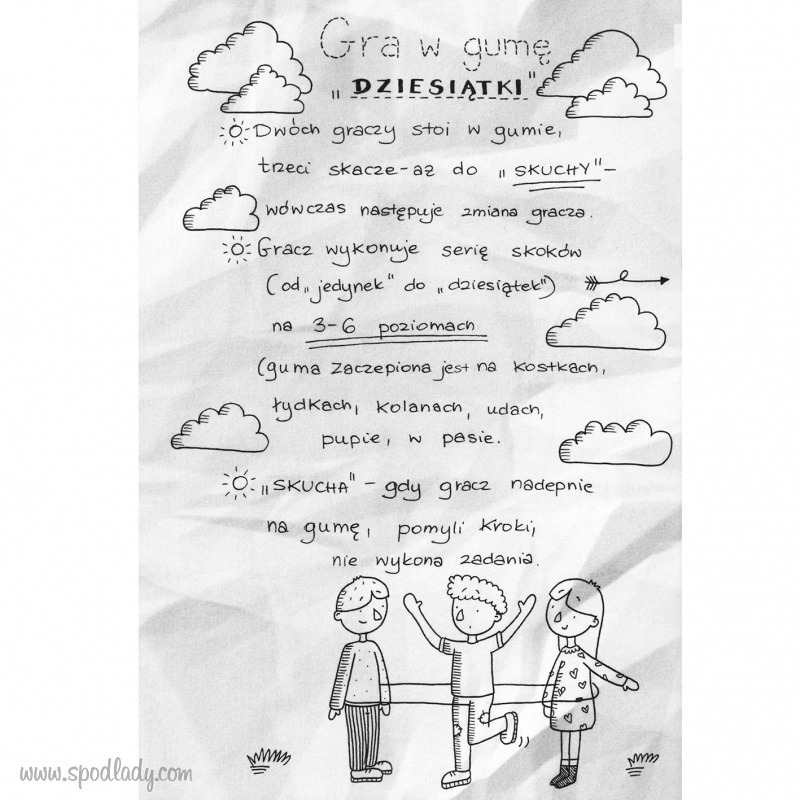 Gra w gumę
„DZIESIĄTKI"
Dwóch graczy stoi w gumie,
trzeci skacze - aż do „SKUCHY" -
wówczas następuje zmiana gracza.
Gracz wykonuje serię skoków
(od „jedynek" do „dziesiątek")
na 3-6 poziomach
(guma zaczepiona jest na kostkach,
łydkach, kolanach, udach,
pupie, w pasie.
„SKUCHA" - gdy gracz nadepnie
na gumę, pomyli kroki,
nie wykona zadania.
www.spodlady.com